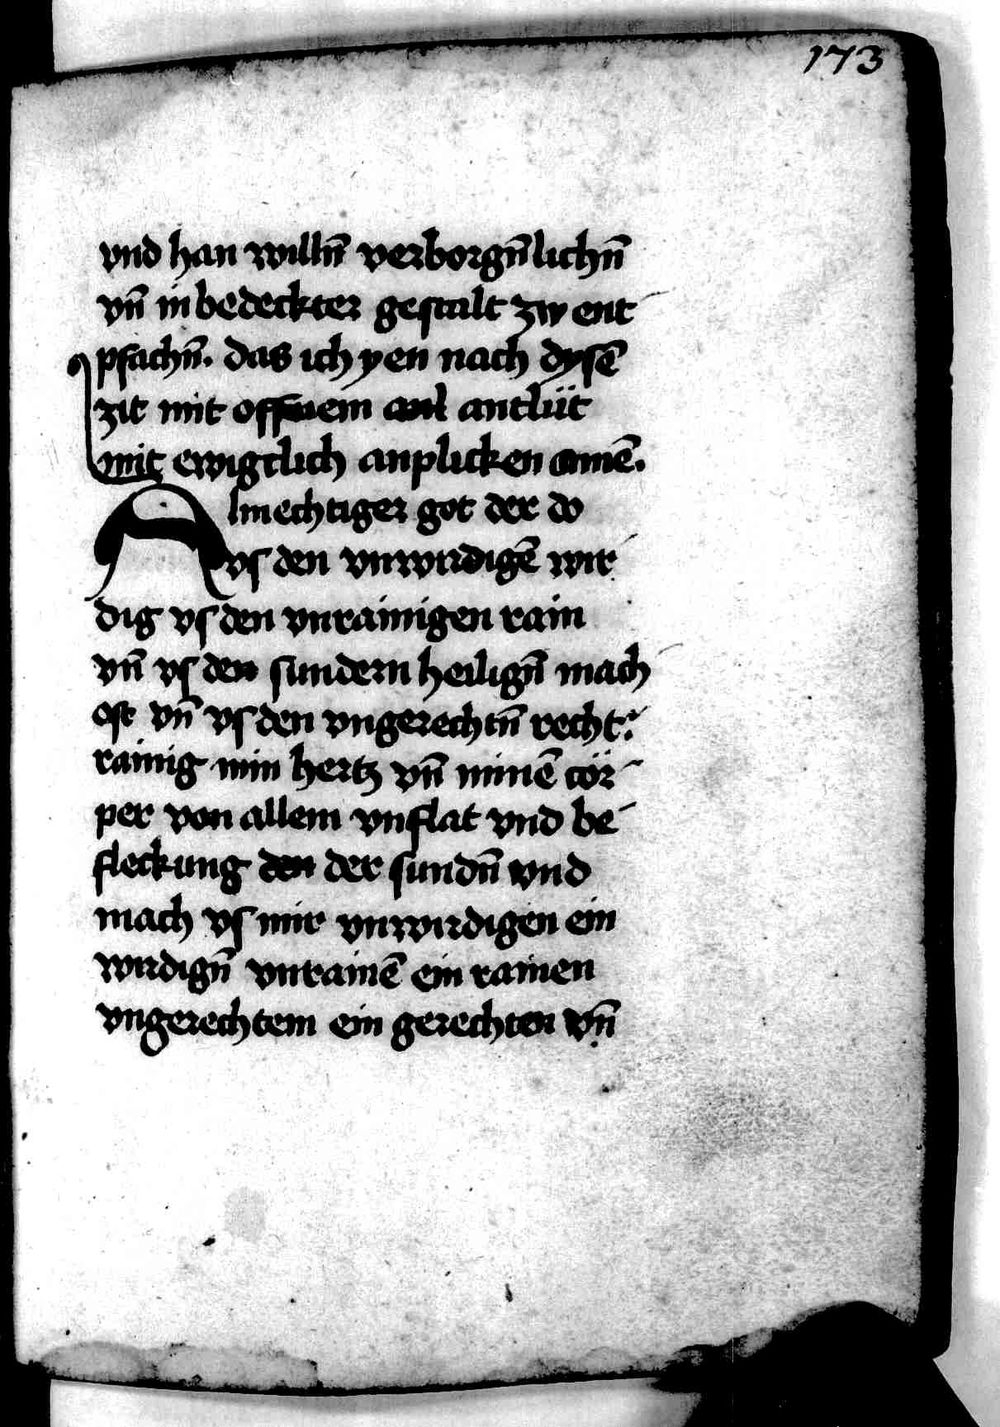 173
vnd han willn̄ verborgn̄lichn̄
vn̄ in bedeckter gestalt zw ent-
pfachn̄. das ich yen nach dysē
zit mit offnem antlüt
mit ewigclich anplicken amē.
Almechtiger got der do
vs den vnwirdigē wir-
dig vs den vnrainigen rain
vn̄ vs den sundern heilign̄ mach-
ost vn̄ vs den vngerechtn̄ recht:
rainig min hertz vn̄ minē cör-
per von allem vnflat vnd be-
fleckung den der sundn̄ vnd
mach vs mir vnwirdigen ein
wirdign̄ vnrainē ein rainen
vngerechtem ein gerechten vn̄